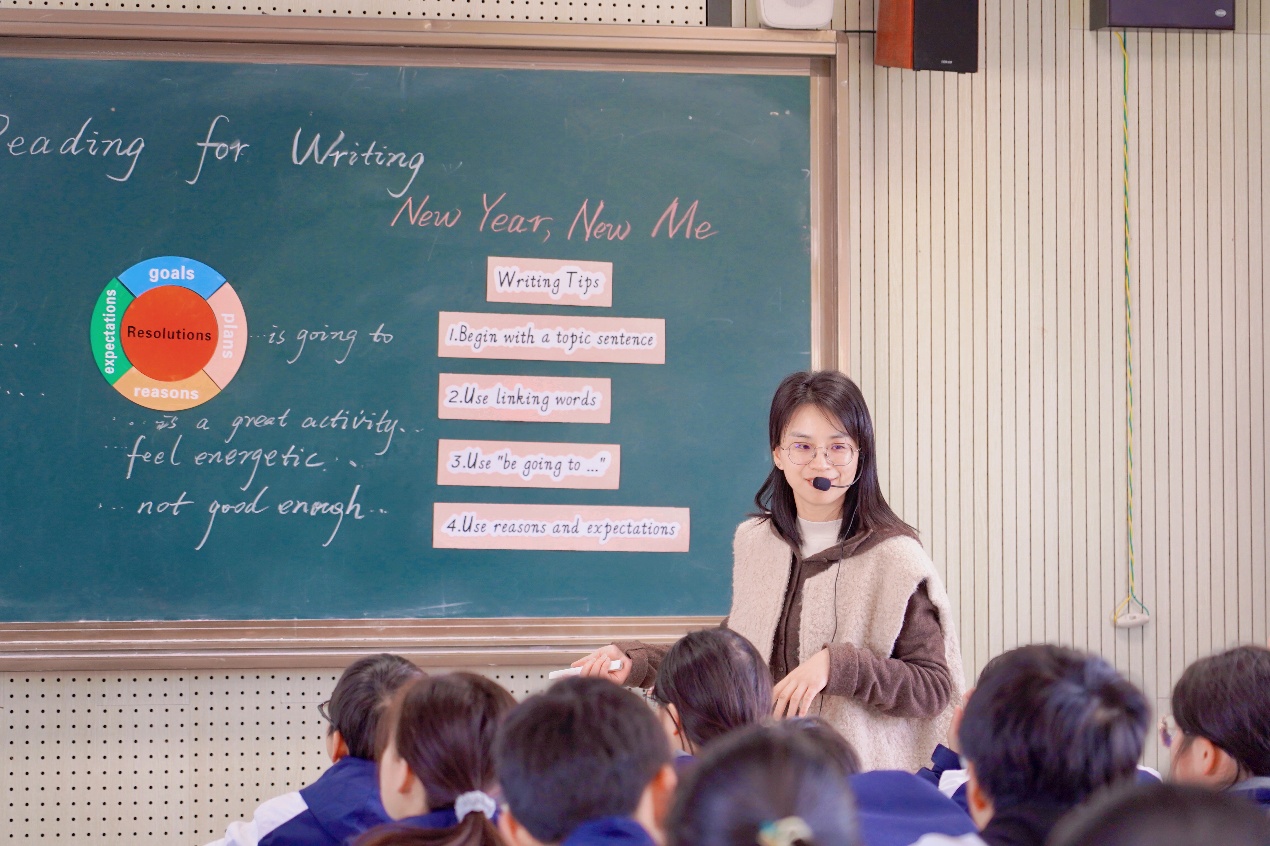 Reading for Writing
New Year, New Me
goals
expectations
Resolutions
plans
reasons
...is going to
... is a great activity...
feel energetic...
... not good enough...
Writing Tips
1.Begin with a topic sentence
2.Use linking words
3.Use "be going to ..."
4.Use reasons and expectations